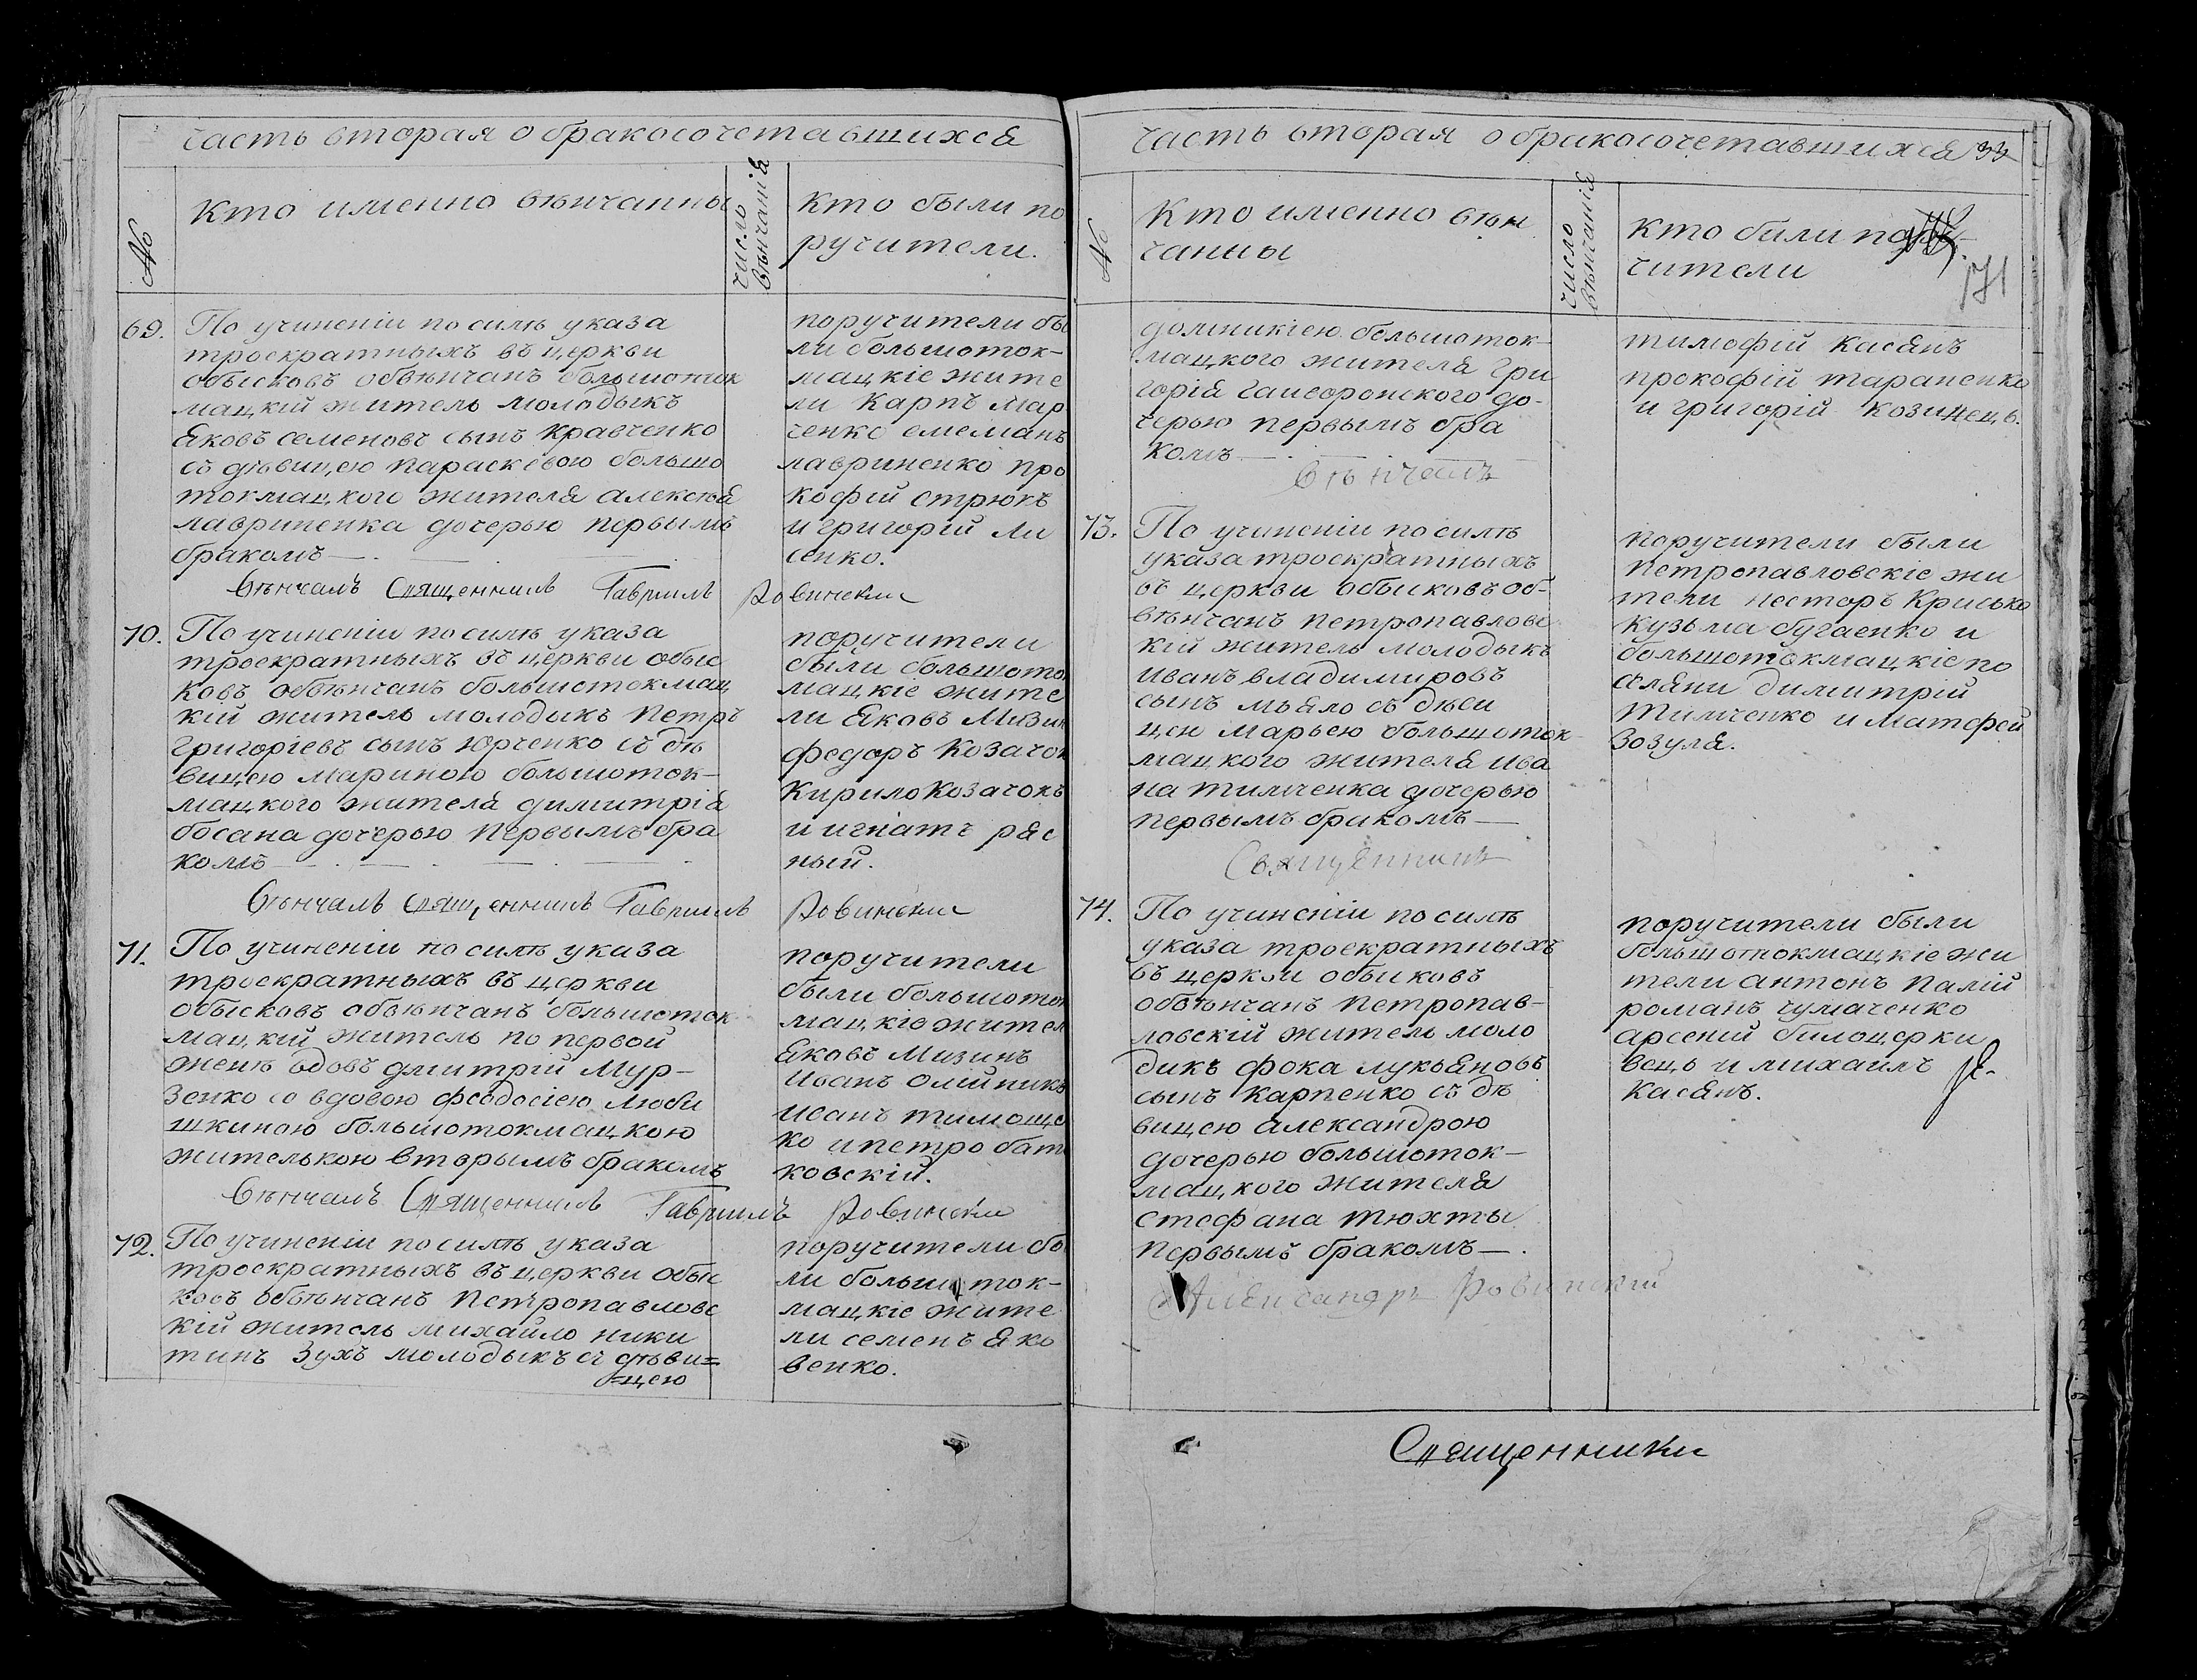 часть вторая о бракосочетавшихся
№
Кто именно вѣнчанны
число вѣнчанія
Кто были по
ручители.
69. По учиненіи по силѣ указа
троекратныхъ въ церкви
обысковъ обвѣнчанъ большоток
мацкій житель молодыкъ
яковъ семеновъ сынъ кравченко
съ дѣвицею параскевою большо
токмацкого жителя алексѣя
лавриненка дочерью первымъ
бракомъ
поручители бы
ли большоток-
мацкіе жите
ли Карпъ мар
ченко емемапъ
лавриненко про
кофій стрюкъ
и григорій ли
сенко.
Вѣнчалъ Священникъ Гавриилъ Ровински
70. По учиненіи по силѣ указа
троекратныхъ въ церкви обыс
ковъ обвѣнчанъ большотокмац
кій житель молодыкъ петръ
григоріевъ сынъ юрченко съ дѣ
вицею мариною большоток-
мацкого жителя димитрія
босана дочерью первымъ бра
комъ
поручители
были большото
мацкіе жите
ли яковъ Мизин
федоръ козачок
Кирило Козачокъ
и игнатъ ряс
ный.
Вѣнчалъ Священникъ Гавриилъ Ровински
71. По учиненіи по силѣ указа
троекратныхъ въ церкви
обысковъ обвѣнчанъ большоток
мацкій житель по первой
женѣ вдовъ дмитрій Мур-
зенко со вдовою феодосіею люби
шкиною большотокмацкою
жителькою вторымъ бракомъ
поручители
были большоток
мацкіе жител
яковъ Мизинъ
Иванъ олійникъ
иванъ тимоще
ко и петро бат
ковскій.
Вѣнчалъ Священникъ Гавриилъ Ровински
72. По учиненіи по силѣ указа
троекратныхъ въ церкви обыс
ковъ обвѣнчанъ Петропавловс
кій житель михайло ники
тинъ Зухъ молодыкъ съ дѣви=
=цею
поручители бы
ли большоток-
мацкіе жите
ли семенъ яко
венко.
часть вторая о бракосочетавшихся 33
№
Кто именно вѣн
чанны
число вѣнчанія
Кто были пору-
чители
171
домникіею большоток-
мацкого жителя гри
горія гайворонского до-
черью первымъ бра
комъ
тимофій касянъ
прокофій тараненко
и григорій козинецъ.
Вѣнчалъ
73. По учиненіи по силѣ
указа троекратныхъ
въ церкви обысковъ об-
вѣнчанъ петропавловс
кій житель молодыкъ
иванъ владимировъ
сынъ мъяло съ дѣви
цею марьею большоток-
мацкого жителя ива
на тимченка дочерью
первымъ бракомъ
поручители были
петропавловскіе жи
тели несторъ Криско
Кузьма бугаенко и
большотокмацкіе по
селяни димитрій
тимченко и матфей
Зозуля.
Священникъ
74. По учиненіи по силѣ
указа троекратныхъ
въ церкви обысковъ
обвѣнчанъ петропав-
ловскій житель моло
дикъ фока лукьяновъ
сынъ карпенко съ дѣ
вицею александрою
дочерью большоток-
мацкого жителя
стефана тюхты
первымъ бракомъ
поручители были
большотокмацкіе жи
тели антонъ палій
романъ чумаченко
арсеній билоцерки
вецъ и михаилъ
касянъ.
Александръ Ровинскій
Священники